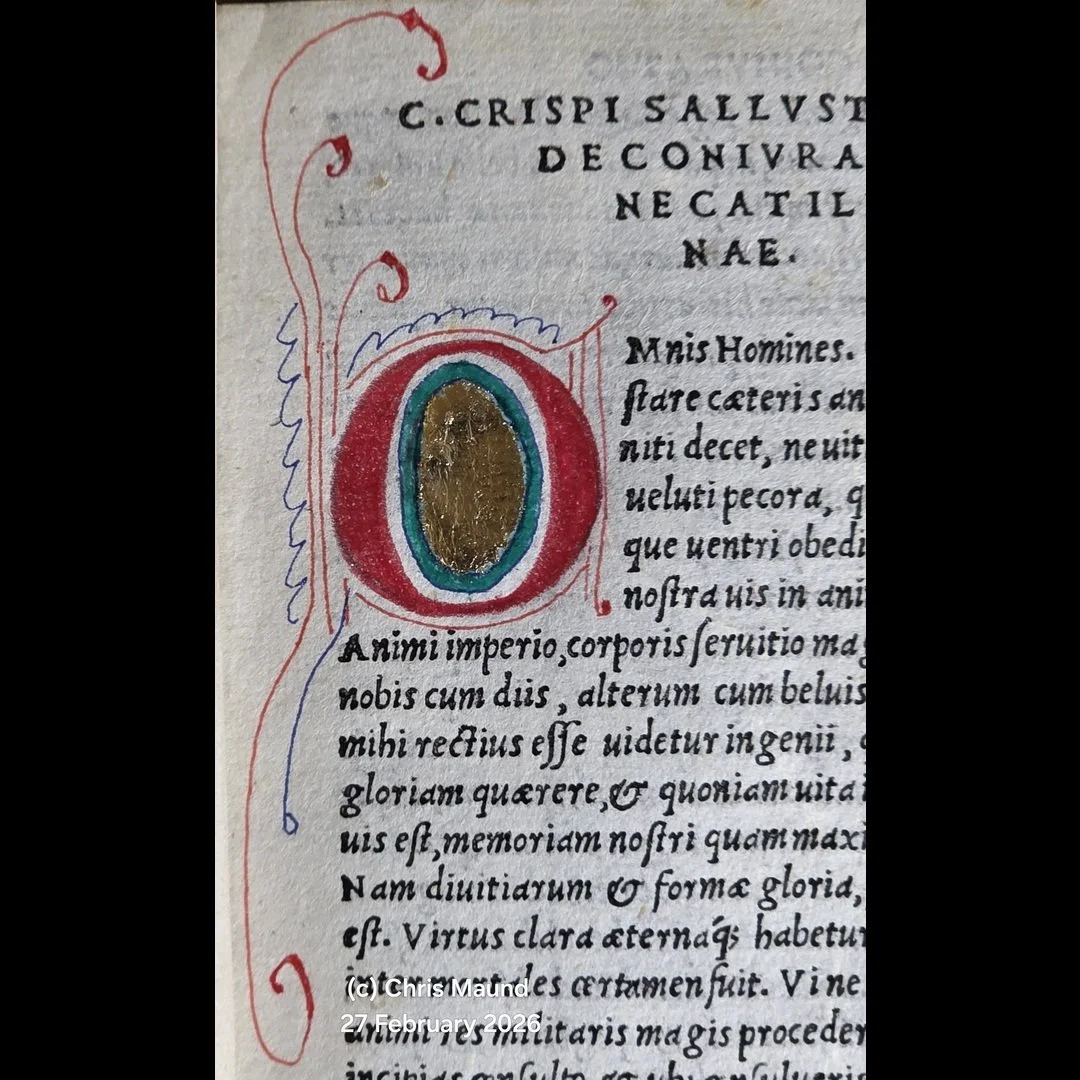 C. CRISPI SALLVST
DE CONIVRA
NE CATIL
NAE.
OMnis Homines.
ſtare cæteris an
niti decet, ne uit
ueluti pecora, q
que uentri obedi
noſtra uis in ani
Animi imperio, corporis ſeruitio mag
nobis cum diis, alterum cum beluis
mihi rectius eſſe uidetur ingenii,
gloriam quærere, & quoniam uita i
uis eſt, memoriam noſtri quam maxi
Nam diuitiarum & formæ gloria,
eſt. Virtus clara æternaq́; habetur
inter mortales certamen fuit. Vi ne
animi res militaris magis proceder
incipias conſulto, & ubi conſulueris
(c) Chris Maund
27 February 2026